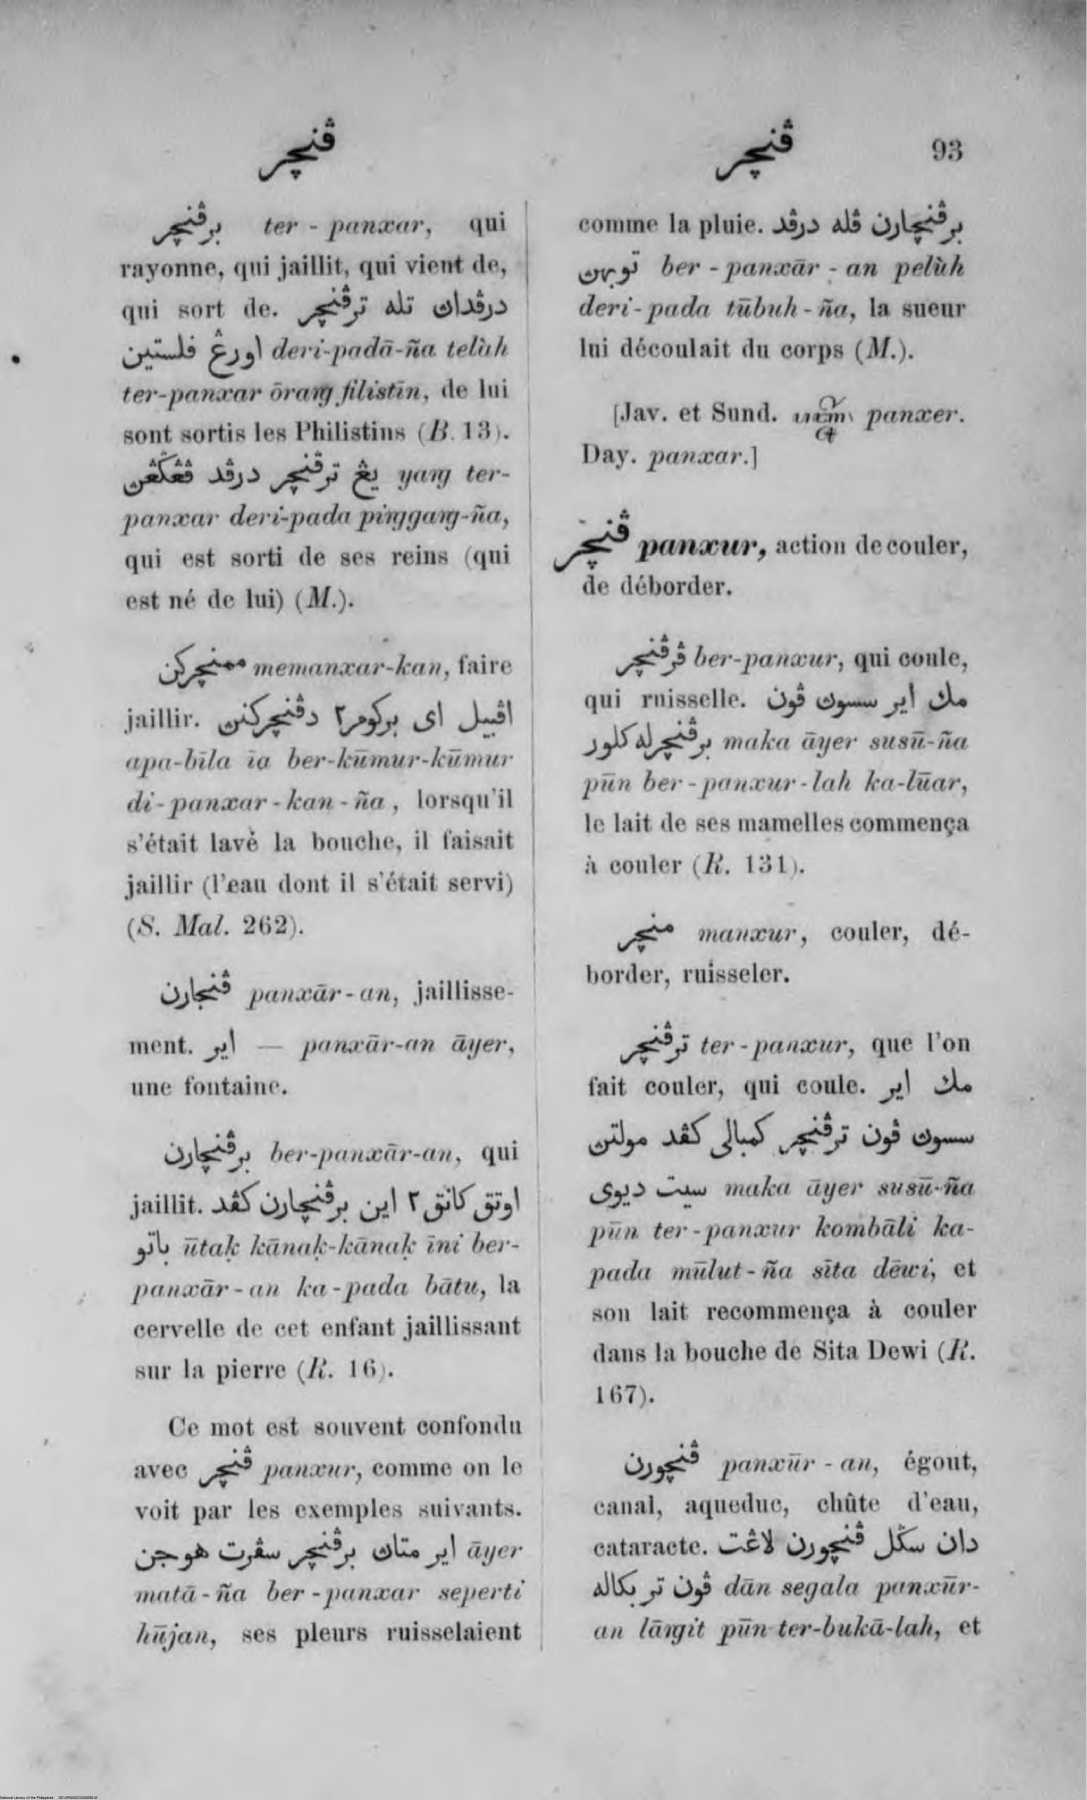 ڤنچر
ڤنچر 93
برڤنچر ter-panxar, qui
rayonne, qui jaillit, qui vient de,
qui sort de. درڤدان تله ترڤنچر
اورڠ فلستين deri-padā-ña telùh
ter-panxar ōrang filistīn, de lui
sont sortis les Philistins (B. 13).
يڠ ترڤنچر درڤد ڤڠݢڠن yang ter-
panxar deri-pada pinggang-ña,
qui est sorti de ses reins (qui
est né de lui) (M.).
ممنچركن memanxar-kan, faire
jaillir. اڤبيل اى بركومر٢ دڤنچركنن
apa-bīla īa ber-kūmur-kūmur
di-panxar-kan-ña, lorsqu'il
s'était lavé la bouche, il faisait
jaillir (l'eau dont il s'était servi)
(S. Mal. 262).
ڤنچارن panxār-an, jaillisse-
ment. اير — panxār-an āyer,
une fontaine.
برڤنچارن ber-panxār-an, qui
jaillit. اوتق كانق٢ اين برڤنچارن كڤد
باتو ūtaḳ kānaḳ-kānaḳ īni ber-
panxār-an ka-pada bātu, la
cervelle de cet enfant jaillissant
sur la pierre (R. 16).
Ce mot est souvent confondu
avec ڤنچر panxur, comme on le
voit par les exemples suivants.
اير متاڽ برڤنچر سڤرت هوجن āyer
matā-ña ber-panxar seperti
hūjan, ses pleurs ruisselaient
comme la pluie. برڤنچارن ڤله درڤد
توبهن ber-panxār-an pelùh
deri-pada tūbuh-ña, la sueur
lui découlait du corps (M.).
[Jav. et Sund. panxer.
Day. panxar.]
ڤنچر panxur, action de couler,
de déborder.
ڤرڤنچر ber-panxur, qui coule,
qui ruisselle. مك اير سسون ڤون
برڤنچرله كلور maka āyer susū-ña
pūn ber-panxur-lah ka-lūar,
le lait de ses mamelles commença
à couler (R. 131).
منچر manxur, couler, dé-
border, ruisseler.
ترڤنچر ter-panxur, que l'on
fait couler, qui coule. مك اير
سسون ڤون ترڤنچر كمبالى كڤد مولتن
سيت ديوى maka āyer susū-ña
pūn ter-panxur kombāli ka-
pada mūlut-ña sīta dēwi, et
son lait recommença à couler
dans la bouche de Sita Dewi (R.
167).
ڤنچورن panxūr-an, égout,
canal, aqueduc, chûte d'eau,
cataracte. دان سݢل ڤنچورن لاڠت
ڤون تر بكاله dān segala panxūr-
an lāngit pūn ter-bukā-lah, et